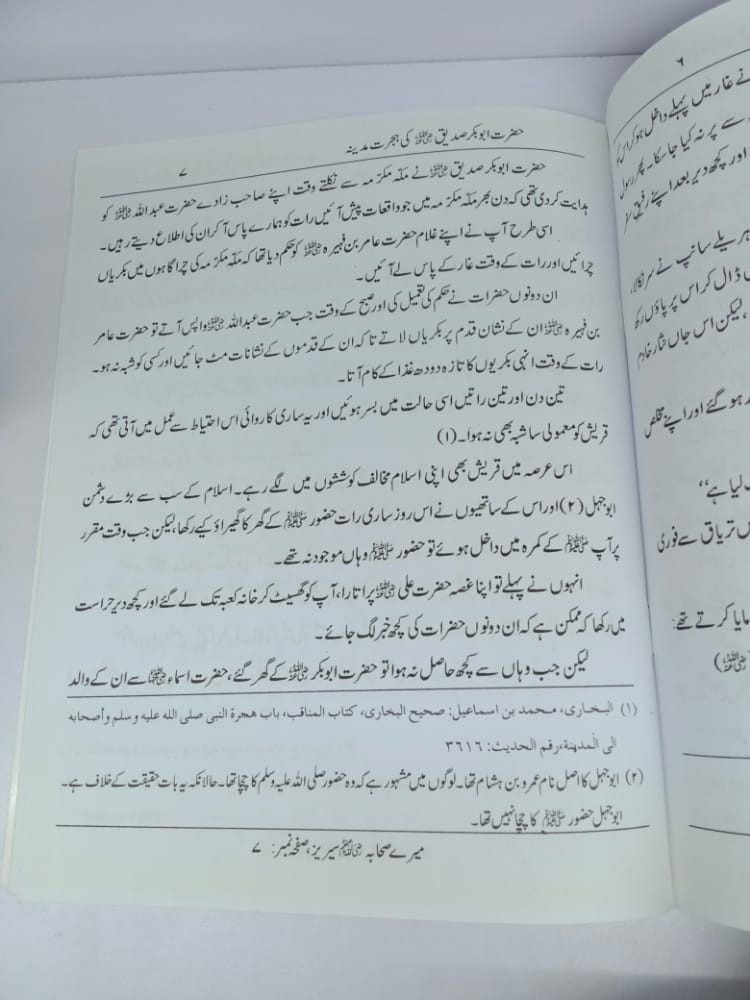 حضرت ابوبکر صدیق ؓ کی ہجرت مدینہ
۷
حضرت ابوبکر صدیق ؓ نے مکہ مکرمہ سے نکلتے وقت اپنے صاحب زادے حضرت عبداللہ ؓ کو
ہدایت کر دی تھی کہ دن بھر مکہ مکرمہ میں جو واقعات پیش آئیں رات کو ہمارے پاس آ کر ان کی اطلاع دیتے رہیں۔
اسی طرح آپ نے اپنے غلام حضرت عامر بن فہیرہ ؓ کو حکم دیا تھا کہ مکہ مکرمہ کی چراگاہوں میں بکریاں
چرائیں اور رات کے وقت غار کے پاس لے آئیں۔
ان دونوں حضرات نے حکم کی تعمیل کی اور صبح کے وقت جب حضرت عبداللہ ؓ واپس آتے تو حضرت عامر
بن فہیرہ ؓ ان کے نشان قدم پر بکریاں لاتے تاکہ ان کے قدموں کے نشانات مٹ جائیں اور کسی کو شبہ نہ ہو۔
رات کے وقت انہی بکریوں کا تازہ دودھ غذا کے کام آتا۔
تین دن اور تین راتیں اسی حالت میں بسر ہوئیں اور یہ ساری کاروائی اس احتیاط سے عمل میں آتی تھی کہ
قریش کو معمولی سا شبہ بھی نہ ہوا۔(۱)
اس عرصہ میں قریش بھی اپنی اسلام مخالف کوششوں میں لگے رہے۔ اسلام کے سب سے بڑے دشمن
ابوجہل (۲) اور اس کے ساتھیوں نے اس روز ساری رات حضور ﷺ کے گھر کا گھیراؤ کیے رکھا، لیکن جب وقت مقرر
پر آپ ﷺ کے کمرہ میں داخل ہوئے تو حضور ﷺ وہاں موجود نہ تھے۔
انہوں نے پہلے تو اپنا غصہ حضرت علی ؓ پر اتارا، آپ کو گھسیٹ کر خانہ کعبہ تک لے گئے اور کچھ دیر حراست
میں رکھا کہ ممکن ہے کہ ان دونوں حضرات کی کچھ خبر لگ جائے۔
لیکن جب وہاں سے کچھ حاصل نہ ہوا تو حضرت ابوبکر ؓ کے گھر گئے، حضرت اسماء ؓ سے ان کے والد
(۱) البخاری، محمد بن اسماعیل: صحیح البخاری، کتاب المناقب، باب هجرة النبی صلی الله علیه وسلم وأصحابه
الی المدینة، رقم الحدیث: ۳۶۱۶
(۲) ابوجہل کا اصل نام عمرو بن ہشام تھا۔ لوگوں میں مشہور ہے کہ وہ حضور صلی اللہ علیہ وسلم کا چچا تھا۔ حالانکہ یہ بات حقیقت کے خلاف ہے۔
ابوجہل حضور ﷺ کا چچا نہیں تھا۔
میرے صحابہ ؓ سیریز، صفحہ نمبر: ۷
۶
نے غار میں پہلے داخل ہو کر اس کو
سے پر نہ کیا جا سکا۔ پھر رسول
اور کچھ دیر بعد اپنے رفیق سفر
ہریلے سانپ نے سر نکالا،
ڈال کر اس پر پاؤں رکھ
، لیکن اس جاں نثار خادم
ہو گئے اور اپنے مخلص
لیا ہے‘‘
تریاق سے فوری
مایا کرتے تھے: